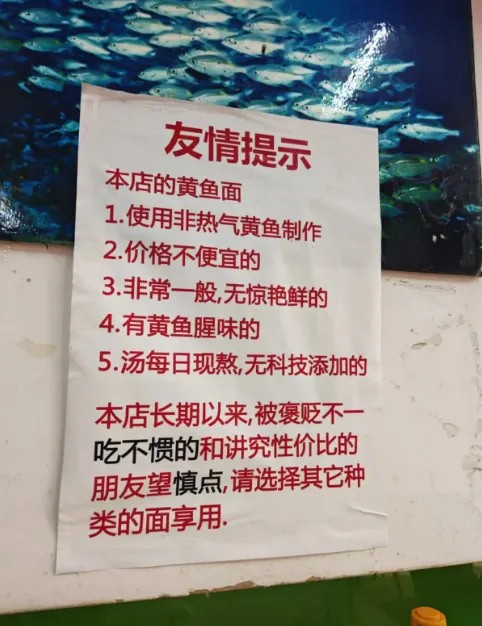 友情提示
本店的黄鱼面
1.使用非热气黄鱼制作
2.价格不便宜的
3.非常一般,无惊艳鲜的
4.有黄鱼腥味的
5.汤每日现熬,无科技添加的
本店长期以来,被褒贬不一
吃不惯的和讲究性价比的
朋友望慎点,请选择其它种
类的面享用.